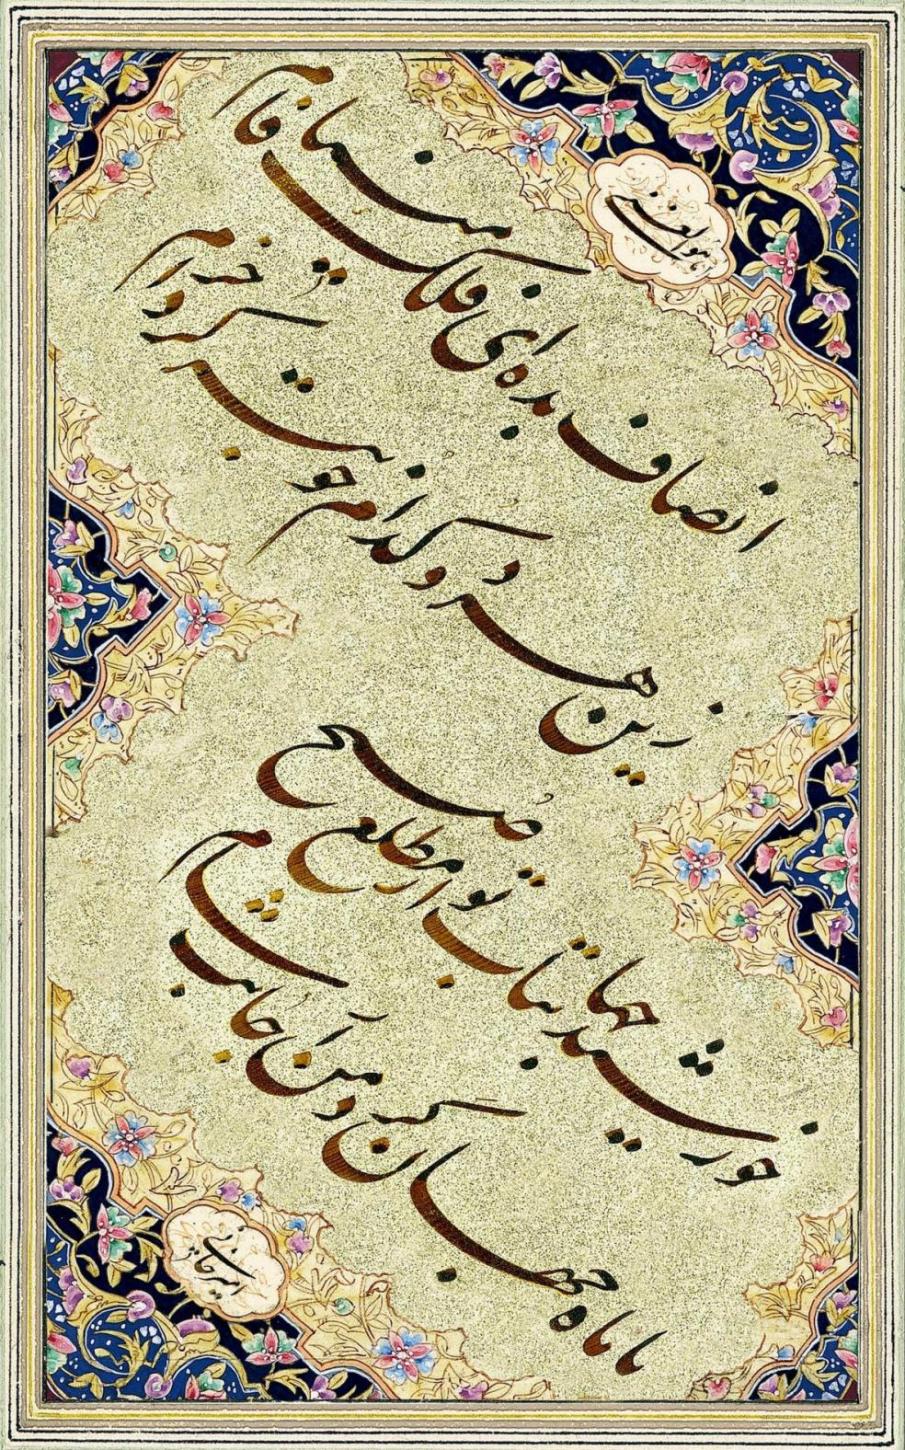 انصاف بده ای فلک مینا فام
زین هر دو کدام خوبتر کرد خرام
خورشید جهانتاب تو از مطلع صبح
یا ماه جهان گرد من از جانب شام